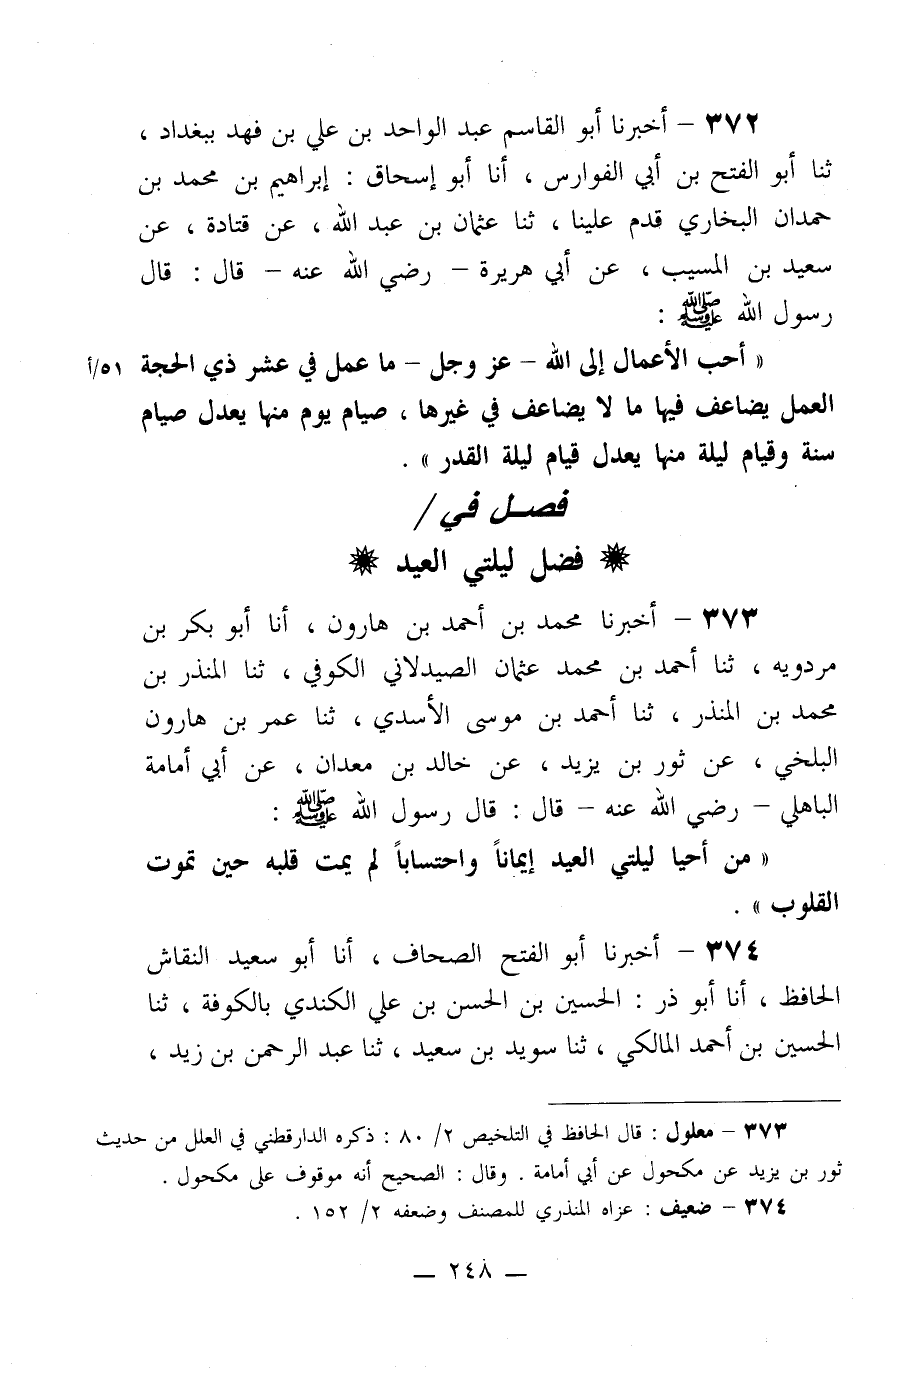 ٣٧٢ – أخبرنا أبو القاسم عبد الواحد بن علي بن فهد ببغداد ،
ثنا أبو الفتح بن أبي الفوارس ، أنا أبو إسحاق : إبراهيم بن محمد بن
حمدان البخاري قدم علينا ، ثنا عثمان بن عبد الله ، عن قتادة ، عن
سعيد بن المسيب ، عن أبي هريرة – رضي الله عنه – قال : قال
رسول الله ﷺ :
« أحب الأعمال إلى الله – عز وجل – ما عمل في عشر ذي الحجة ٥١/أ
العمل يضاعف فيها ما لا يضاعف في غيرها ، صيام يوم منها يعدل صيام
سنة وقيام ليلة منها يعدل قيام ليلة القدر » .
فصل في /
فضل ليلتي العيد
٣٧٣ – أخبرنا محمد بن أحمد بن هارون ، أنا أبو بكر بن
مردويه ، ثنا أحمد بن محمد عثمان الصيدلاني الكوفي ، ثنا المنذر بن
محمد بن المنذر ، ثنا أحمد بن موسى الأسدي ، ثنا عمر بن هارون
البلخي ، عن ثور بن يزيد ، عن خالد بن معدان ، عن أبي أمامة
الباهلي – رضي الله عنه – قال : قال رسول الله ﷺ :
« من أحيا ليلتي العيد إيماناً واحتساباً لم يمت قلبه حين تموت
القلوب » .
٣٧٤ – أخبرنا أبو الفتح الصحاف ، أنا أبو سعيد النقاش
الحافظ ، أنا أبو ذر : الحسين بن الحسن بن علي الكندي بالكوفة ، ثنا
الحسين بن أحمد المالكي ، ثنا سويد بن سعيد ، ثنا عبد الرحمن بن زيد ،
٣٧٣ – معلول : قال الحافظ في التلخيص ٢/ ٨٠ : ذكره الدارقطني في العلل من حديث
ثور بن يزيد عن مكحول عن أبي أمامة . وقال : الصحيح أنه موقوف على مكحول .
٣٧٤ – ضعيف : عزاه المنذري للمصنف وضعفه ٢/ ١٥٢ .
– ٢٤٨ –